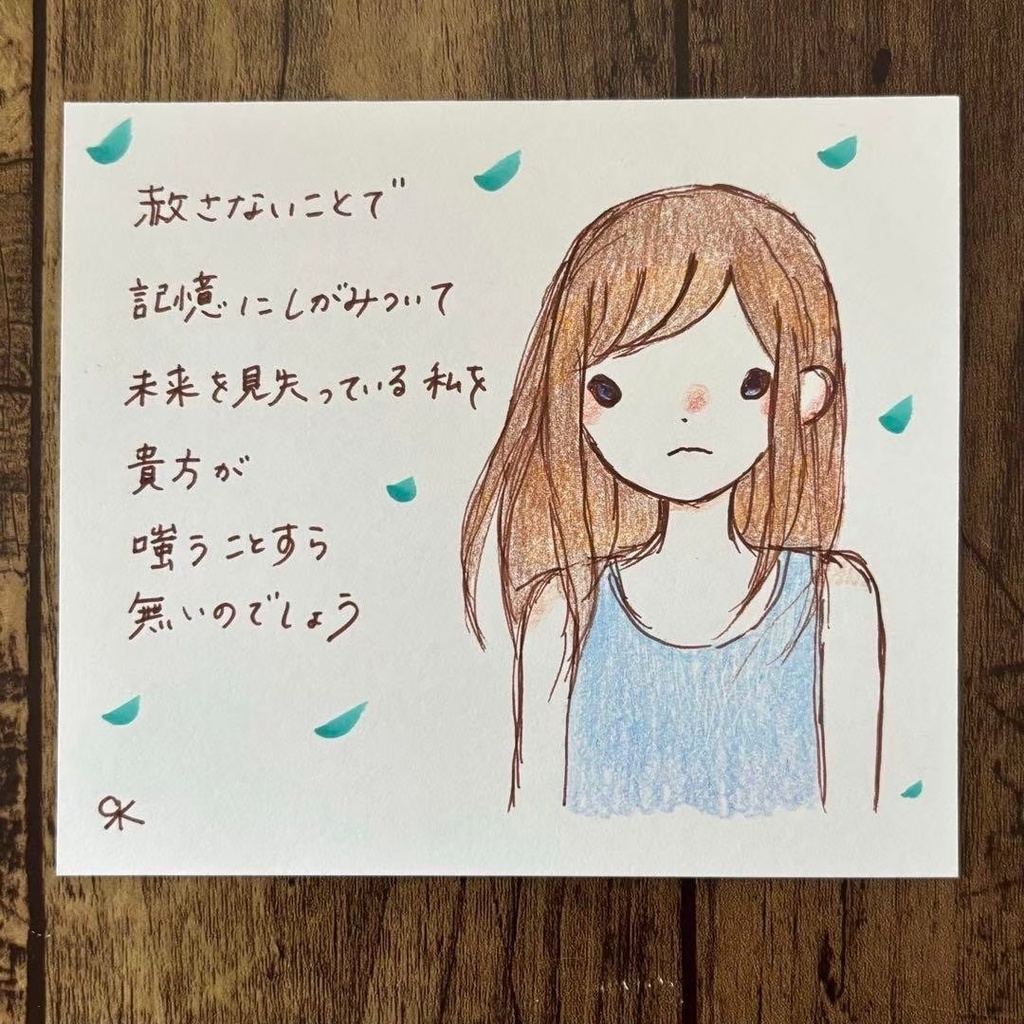 赦さないことで
記憶にしがみついて
未来を見失っている私を
貴方が
嗤うことすら
無いのでしょう